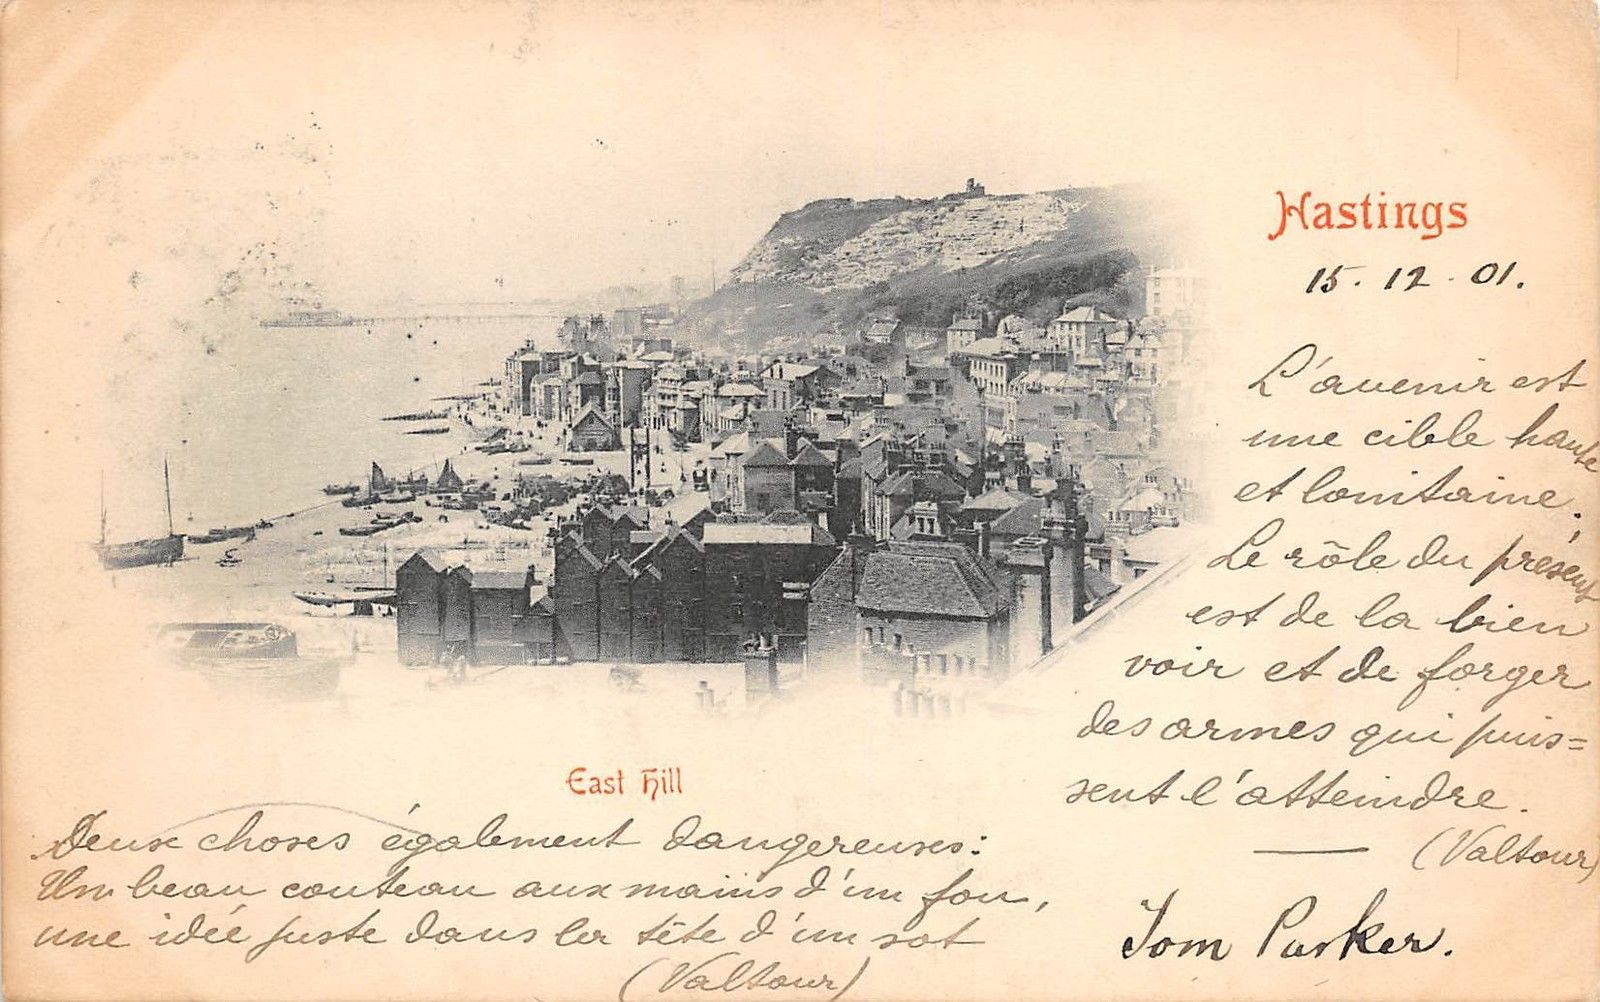 Hastings
15. 12. 01.
L'avenir est
une cible haute
et lointaine.
Le rôle du présent
est de la bien
voir et de forger
des armes qui puis=
sent l'atteindre.
(Valtour)
East Hill
Deux choses également dangereuses:
Un beau couteau aux mains d'un fou,
une idée juste dans la tête d'un sot
(Valtour)
Tom Parker.